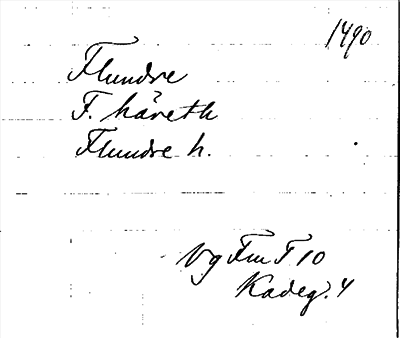 1490
Flundre
F. häreth
Flundre h.
Vg Fm T 10
Kadeg. 4